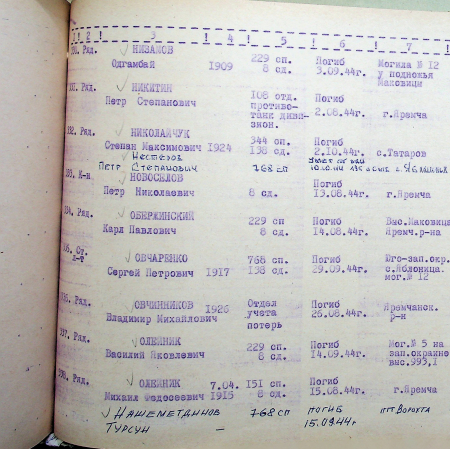 1 2 3 4 5 6 7
Ряд. НИЗАМОВ 229 сп. Погиб Могила № 12
Одгамбай 1909 8 сд. 3.09.44г. у подножья
Маковицы
Ряд. НИКИТИН 108 отд. Погиб
Петр Степанович противо- 2.08.44г. г.Яремча
танк диви-
зион.
Ряд. НИКОЛАЙЧУК 344 сп. Погиб
Степан Максимович 1924 138 сд. 2.10.44г. с.Татаров
НЕСТЕРОВ
ПЕТР СТЕПАНОВИЧ 768 сп
К-н НОВОСЕЛОВ Погиб
Петр Николаевич 8 сд. 13.08.44г. г.Яремча
Ряд. ОБЕРЖИНСКИЙ 229 сп Погиб Выс.Маковица
Карл Павлович 8 сд. 14.08.44г. Яремч.р-на
Ст. ОВЧАРЕНКО 768 сп. Погиб Юго-зап.окр.
л-т Сергей Петрович 1917 138 сд. 29.09.44г. с.Яблоница.
мог.№ 12
Ряд. ОВЧИННИКОВ 1926 Отдел Погиб Яремчанск.
Владимир Михайлович учета 26.08.44г. р-н
потерь
337. Ряд. ОЛЕЙНИК 229 сп. Погиб Мог.№ 5 на
Василий Яковлевич 8 сд. 14.09.44г. зап.окраине
выс.993,1
338. Ряд. ОЛЕЙНИК 7.04. 151 сп. Погиб
Михаил Федосеевич 1915 8 сд. 15.08.44г. г.Яремча
НАШЕМЕТДИНОВ 768 СП ПОГИБ ПГТ ВОРОХТА
ТУРСУН – 15.09.44г.